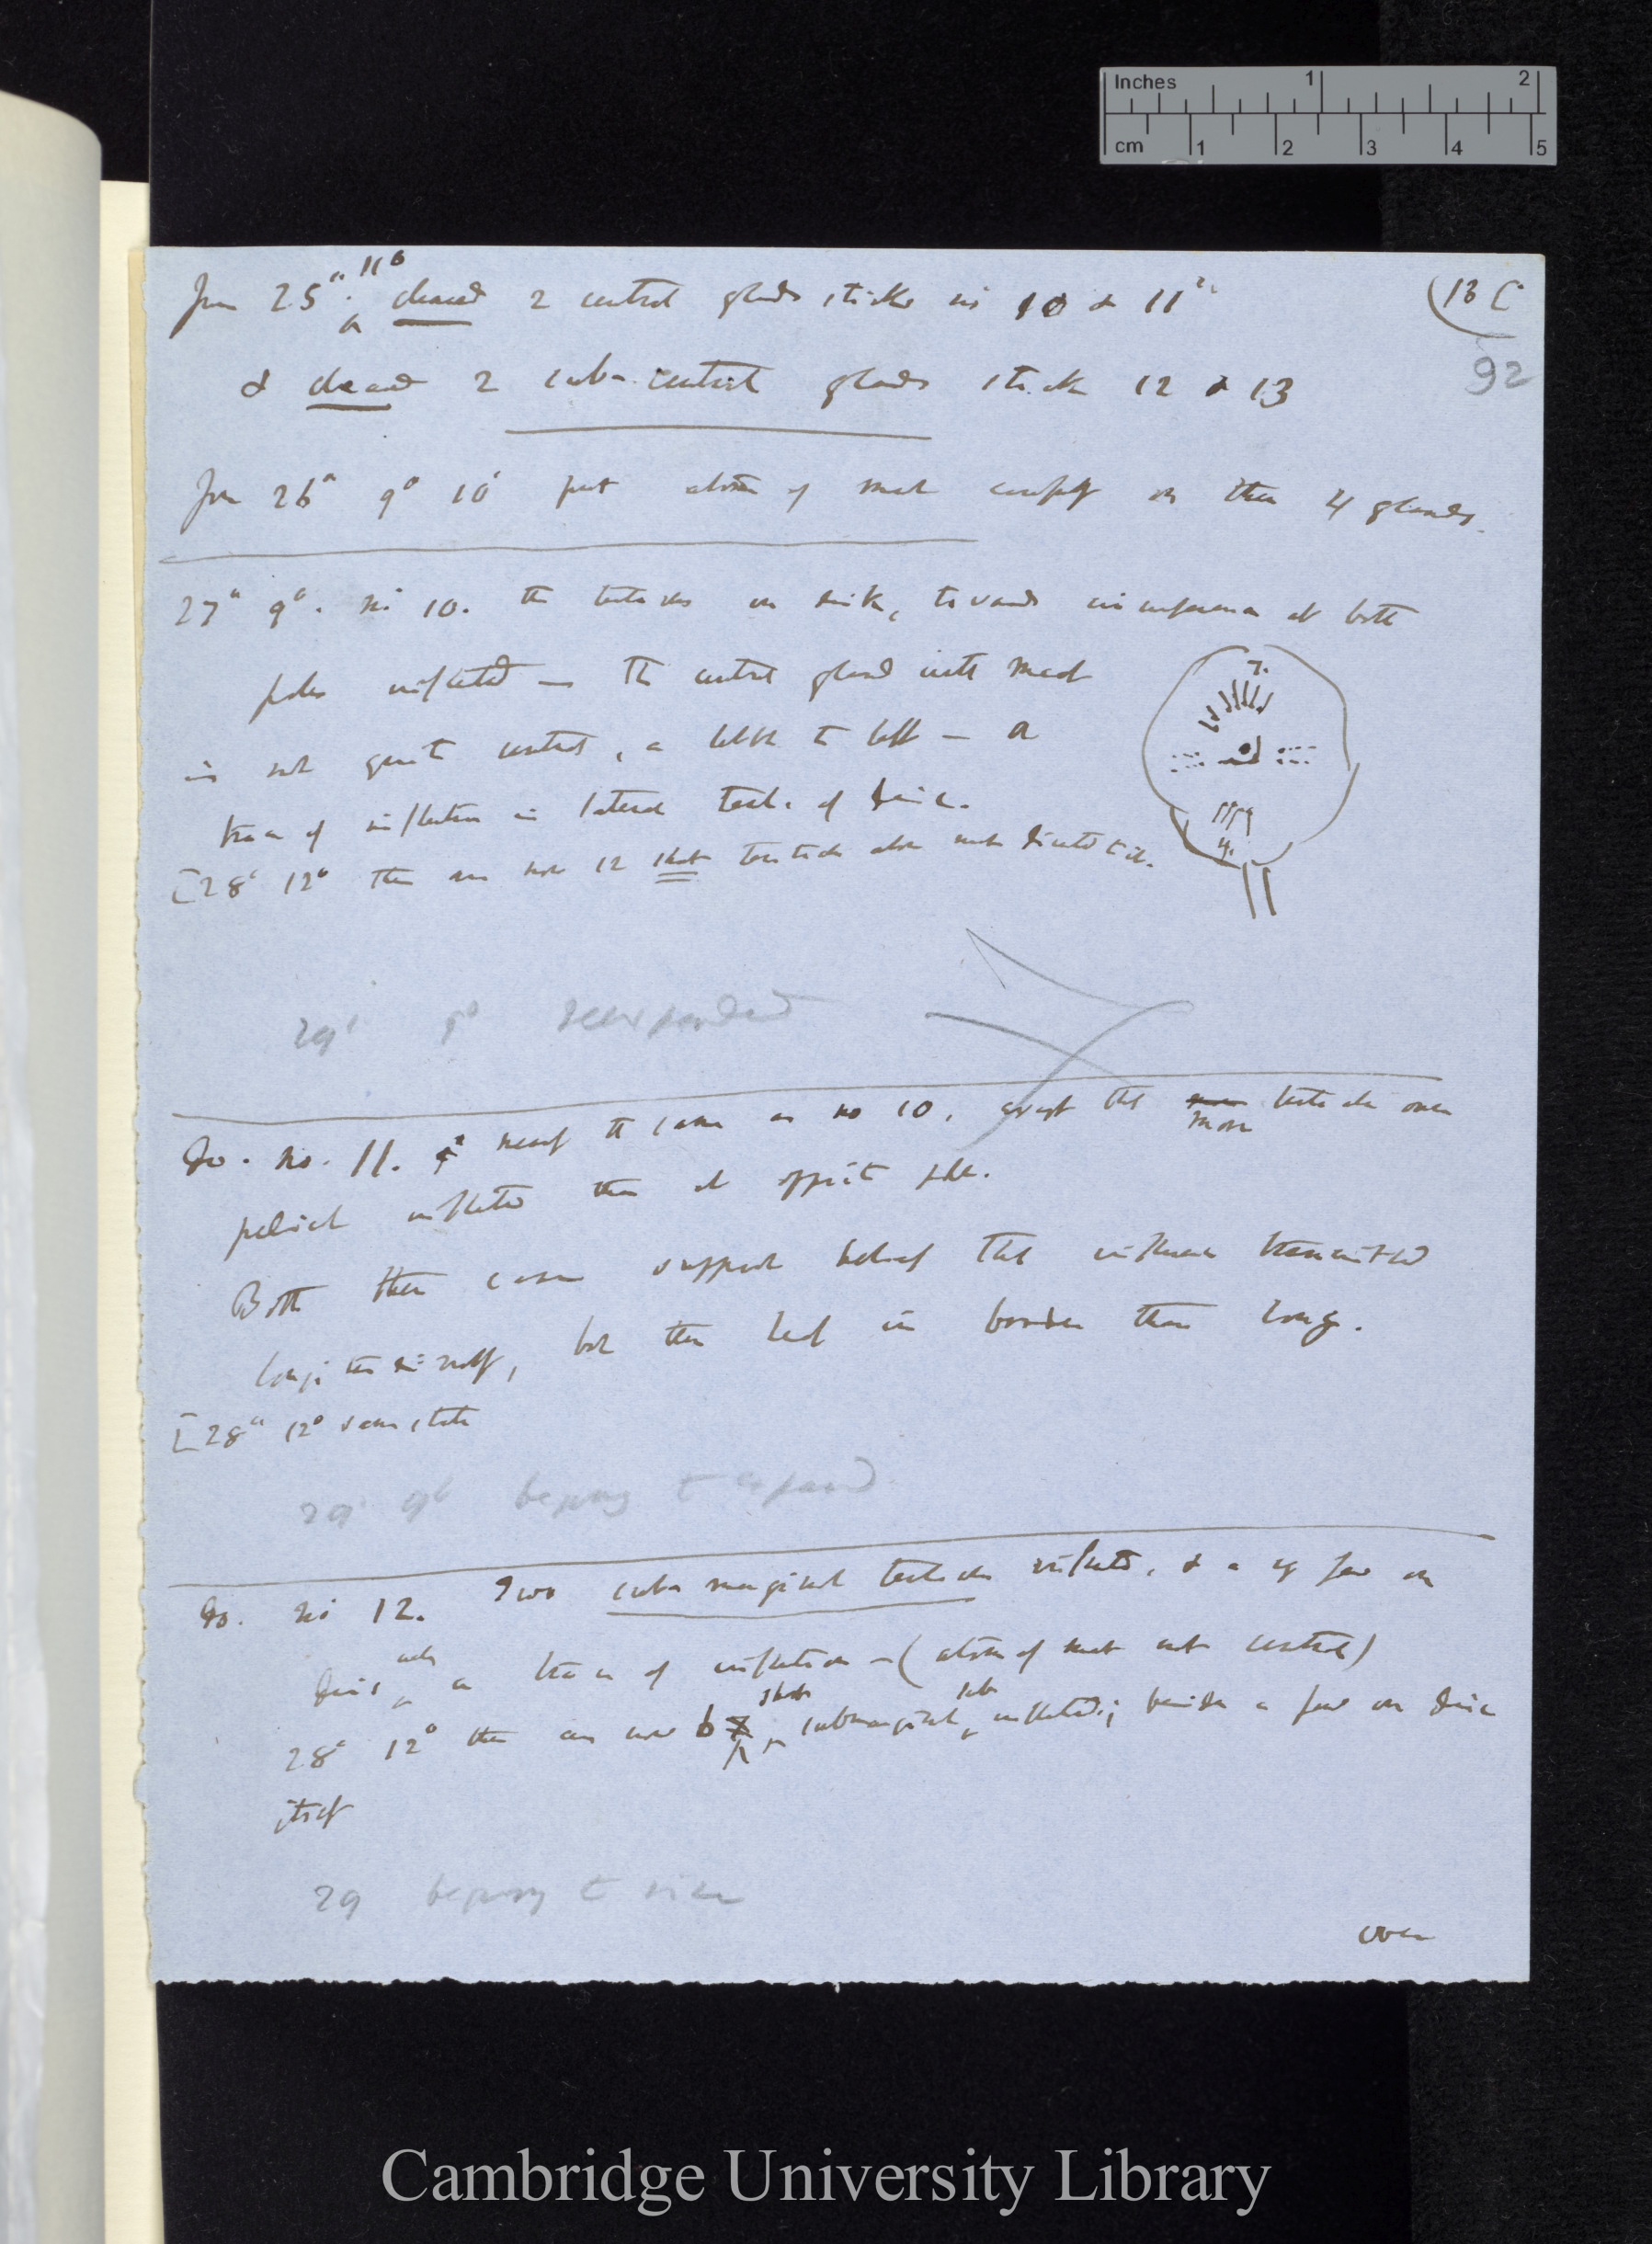 Inches 1 2
cm 1 2 3 4 5
(13 C
92
June 25th. 11° cleaned 2 central glands sticks in 10 & 11th
& cleaned 2 sub-central glands stick 12 & 13
June 26th 9° 10' put atom of meat carefully on these 4 glands.
27th 9°. No 10. the tentacles on disk, towards circumference at both
poles inflected — The central gland with meat
is not quite central, a little to left — a
trace of inflection in lateral tent. of disc.
[28th 12° there are now 12 short tentacles above meat
7.
4.
29th 9° reexpanded
Do. No. 11. nearly the same as no 10, except that more tentacles over
pedicel inflected than at opposite pole.
Both these cases support belief that influence transmitted
longitudinally, but then leaf is broader than long.
[28th 12° same state
29th 9° beginning to expand
Do. No 12. Two sub-marginal tentacles inflected, & a very few on
disc with a trace of inflection — (atom of meat not central)
28th 12° there are now 6 short submarginal tent inflected; beside a few on disc
itself
29 beginning to
over
Cambridge University Library